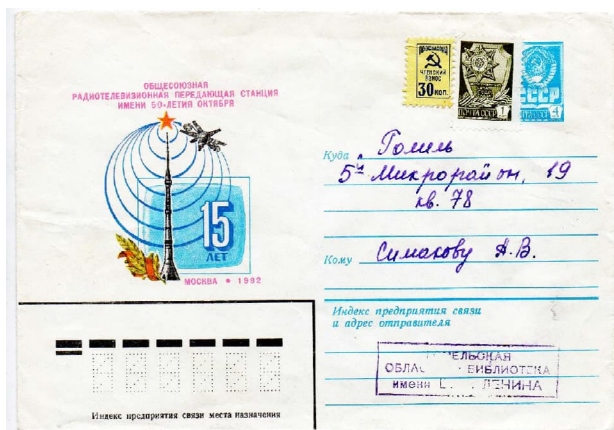 ОБЩЕСОЮЗНАЯ
РАДИОТЕЛЕВИЗИОННАЯ ПЕРЕДАЮЩАЯ СТАНЦИЯ
ИМЕНИ 50-ЛЕТИЯ ОКТЯБРЯ
15
ЛЕТ
МОСКВА • 1982
ЧЛЕНСКИЙ
ВЗНОС
30 коп.
ПОЧТА СССР 1
СССР
4
Куда г. Гомель
5й Микрорайон, 19
кв. 78
Кому Симакову А.В.
Индекс предприятия связи
и адрес отправителя
БИБЛИОТЕКА
имени ЛЕНИНА
Индекс предприятия связи места назначения